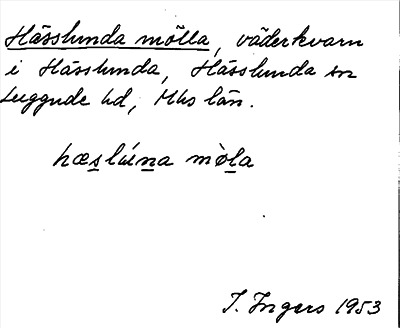 Hässlunda mölla, väderkvarn
i Hässlunda, Hässlunda sn
Luggude hd, Mhs län.
hæslúna mòla
I. Ingers 1953